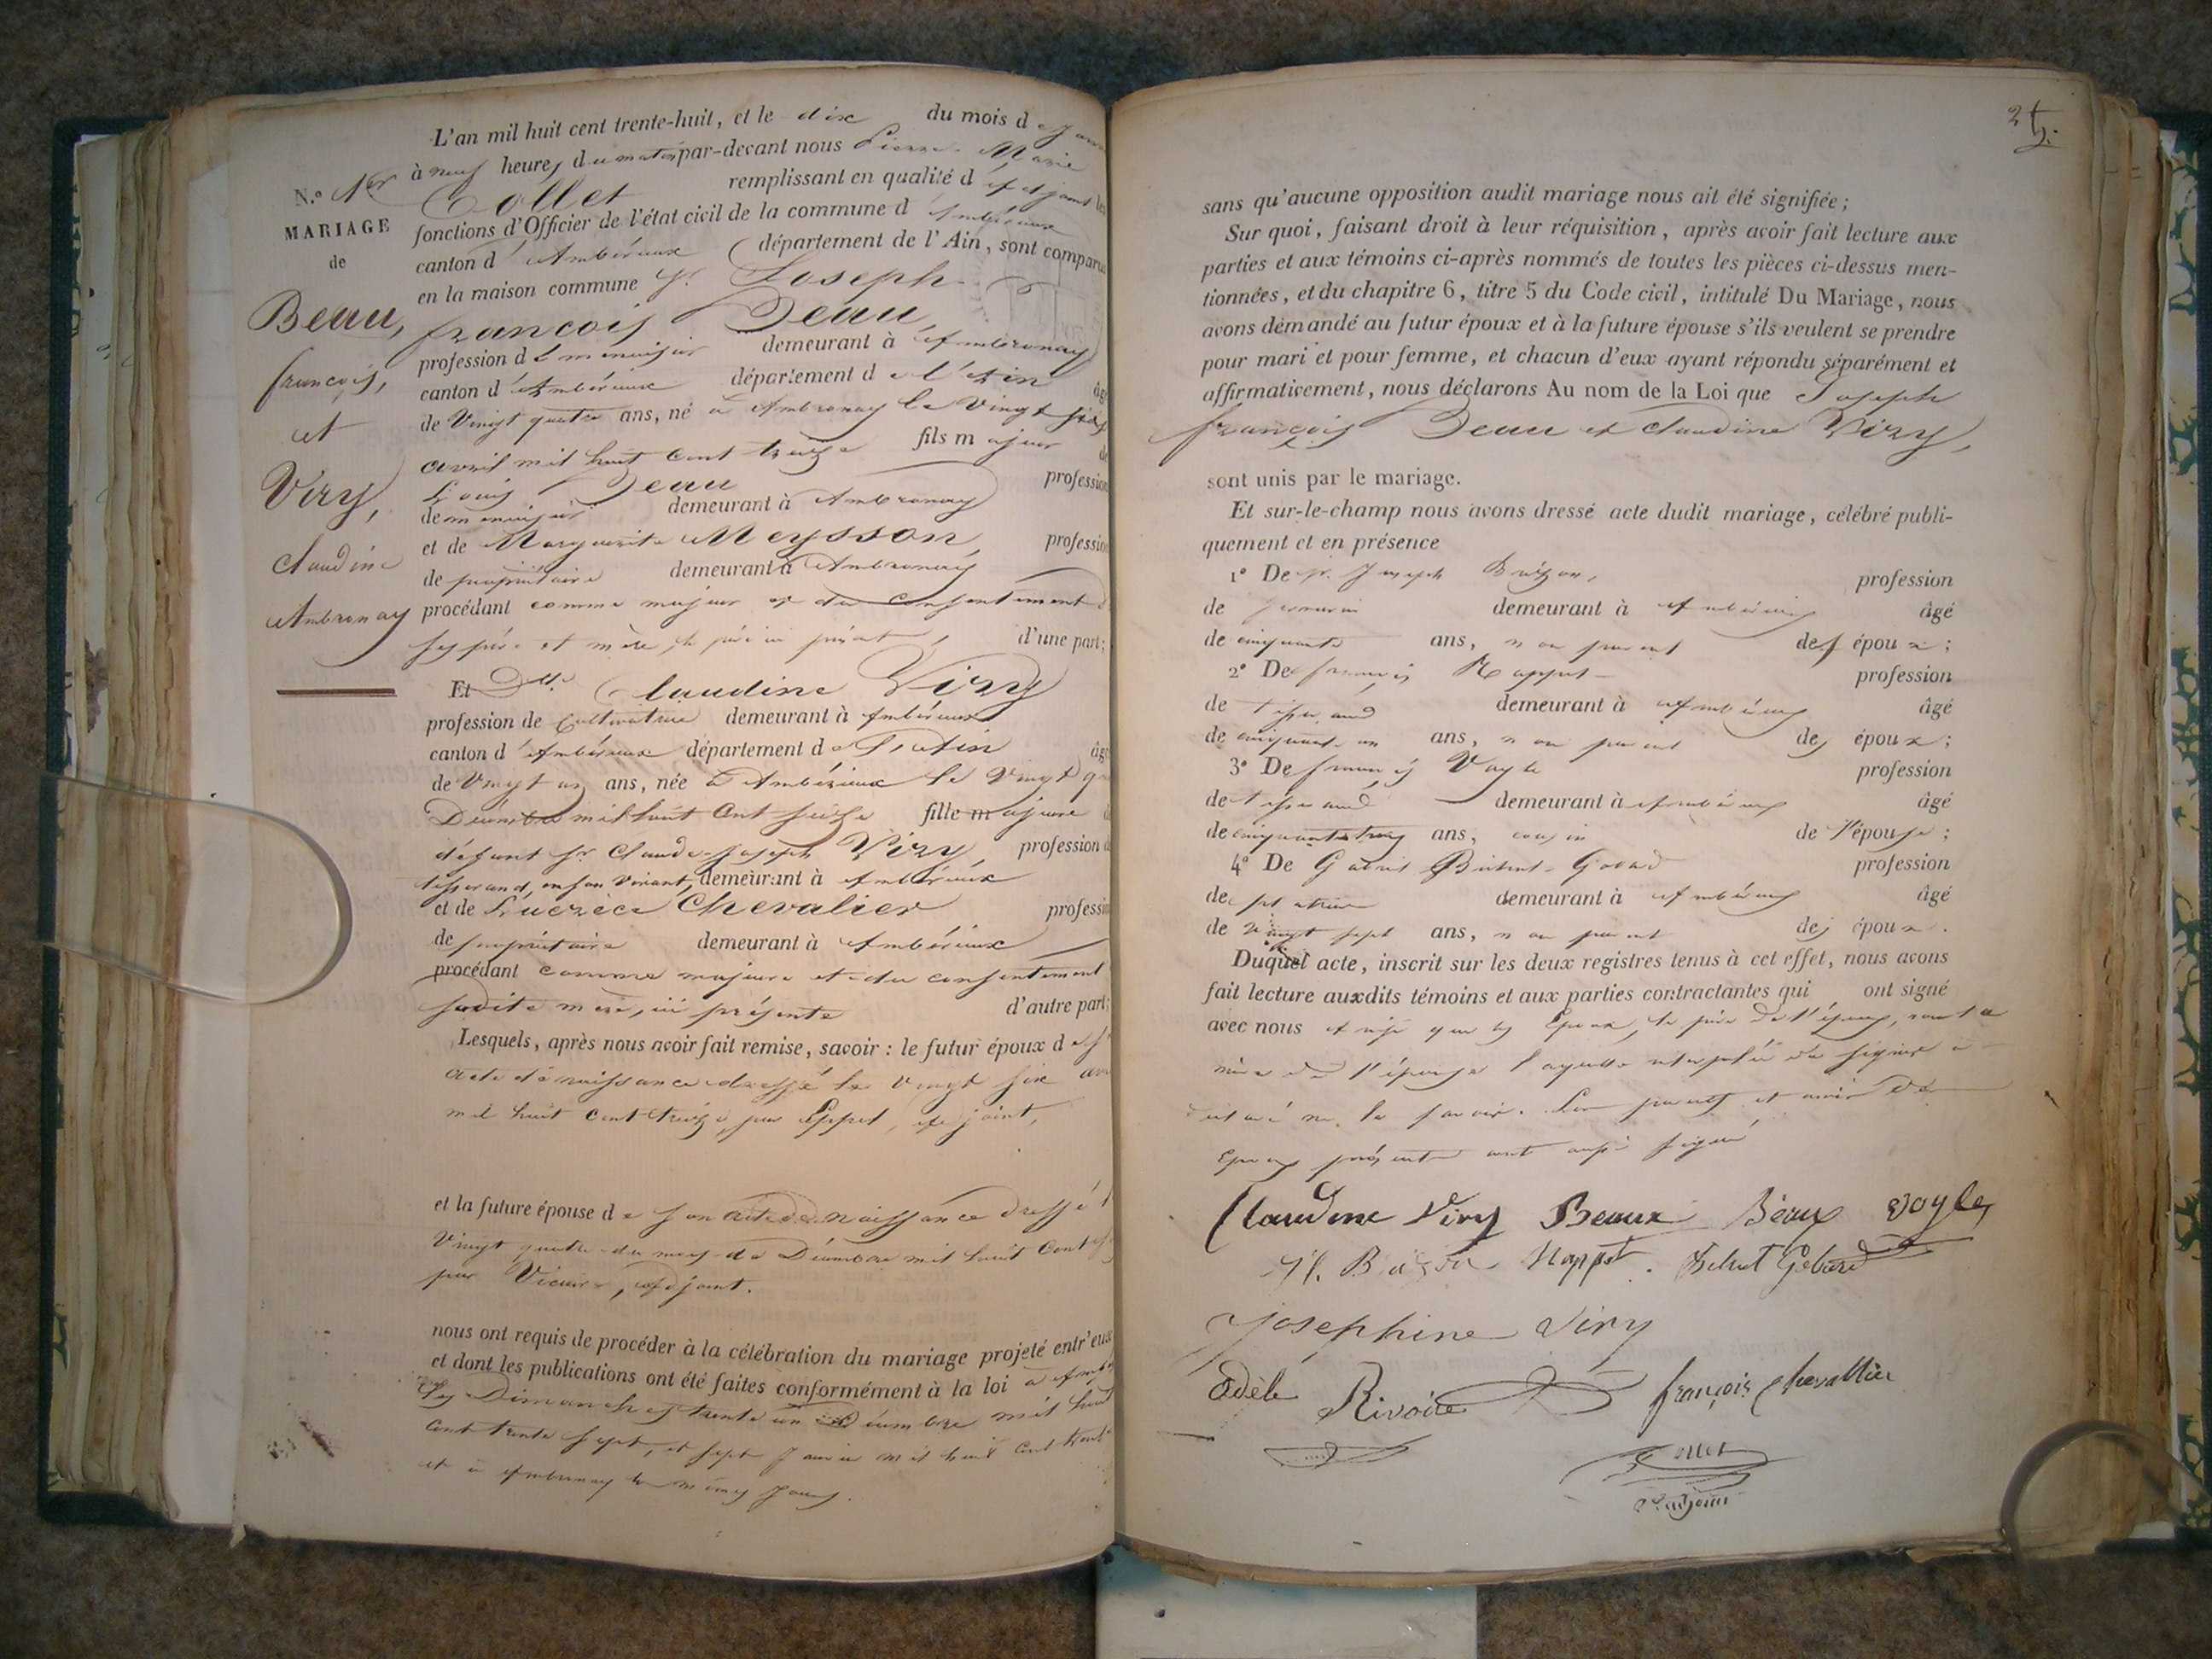 L'an mil huit cent trente-huit, et le dix du mois de
à neuf heures du matin par-devant nous Pierre Marie
N.º 1er
Collet remplissant en qualité d'adjoint les
MARIAGE
fonctions d'Officier de l'état civil de la commune d'Ambérieux
de
canton d'Ambérieux département de l'Ain, sont comparus
en la maison commune Sr. Joseph
Beau,
françois Beau,
profession de menuisier demeurant à Ambronay
françois,
canton d'Ambérieux département de l'Ain âgé
de Vingt quatre ans, né à Ambronay le Vingt six
et
avril mil huit cent treize fils majeur de
Viry,
Louis Beau profession
de menuisier demeurant à Ambronay
et de Marguerite Meysson, profession
Claudine
de propriétaire demeurant à Ambronay
Ambronay
procédant comme majeur et du consentement de
ses père et mère, le père ici présent, d'une part;
Et Dlle. Claudine Viry
profession de Cultivatrice demeurant à Ambérieux
canton d'Ambérieux département de l'Ain âgée
de Vingt un ans, née à Ambérieux le Vingt
Décembre mil huit cent seize fille majeure
défunt Sr Claude-Joseph Viry, profession de
tisserand, en son vivant, demeurant à Ambérieux
et de Lucrèce Chevalier profession
de propriétaire demeurant à Ambérieux
procédant comme majeure et du consentement
sadite mère, ici présente d'autre part;
Lesquels, après nous avoir fait remise, savoir : le futur époux de
acte de naissance dressé le vingt six
mil huit cent treize, par, adjoint,
et la future épouse de son acte de naissance dressé
Vingt quatre du mois de Décembre mil huit cent
par, adjoint.
nous ont requis de procéder à la célébration du mariage projeté entr'eux
et dont les publications ont été faites conformément à la loi à
les Dimanches trente un Décembre mil huit
cent trente sept, et sept Janvier mil huit cent trente
et à Ambronay les mêmes jours.
2
sans qu'aucune opposition audit mariage nous ait été signifiée ;
Sur quoi, faisant droit à leur réquisition, après avoir fait lecture aux
parties et aux témoins ci-après nommés de toutes les pièces ci-dessus men-
tionnées, et du chapitre 6, titre 5 du Code civil, intitulé Du Mariage, nous
avons demandé au futur époux et à la future épouse s'ils veulent se prendre
pour mari et pour femme, et chacun d'eux ayant répondu séparément et
affirmativement, nous déclarons Au nom de la Loi que Joseph
françois Beau et Claudine Viry,
sont unis par le mariage.
Et sur-le-champ nous avons dressé acte dudit mariage, célébré publi-
quement et en présence
1º De Sr. Joseph profession
de demeurant à Ambérieux âgé
de cinquante ans, non parent des époux ;
2º De françois profession
de tisserand demeurant à Ambérieux âgé
de cinquante un ans, non parent des époux ;
3º De françois Vogle profession
de tisserand demeurant à Ambérieux âgé
de cinquante trois ans, cousin de l'épouse ;
4º De Gabriel profession
de demeurant à Ambérieux âgé
de vingt sept ans, non parent des époux.
Duquel acte, inscrit sur les deux registres tenus à cet effet, nous avons
fait lecture auxdits témoins et aux parties contractantes qui ont signé
avec nous ainsi que les Epoux, le père de l'époux, non la
mère de l'épouse laquelle interpellée de signer a
déclaré ne le savoir. Les parents et amis des
Epoux présents ont aussi signé
Claudine Viry Beaux Béaux Vogle
Josephine Viry
Adèle Rivoire françois Chevallier
Collet
adjoint